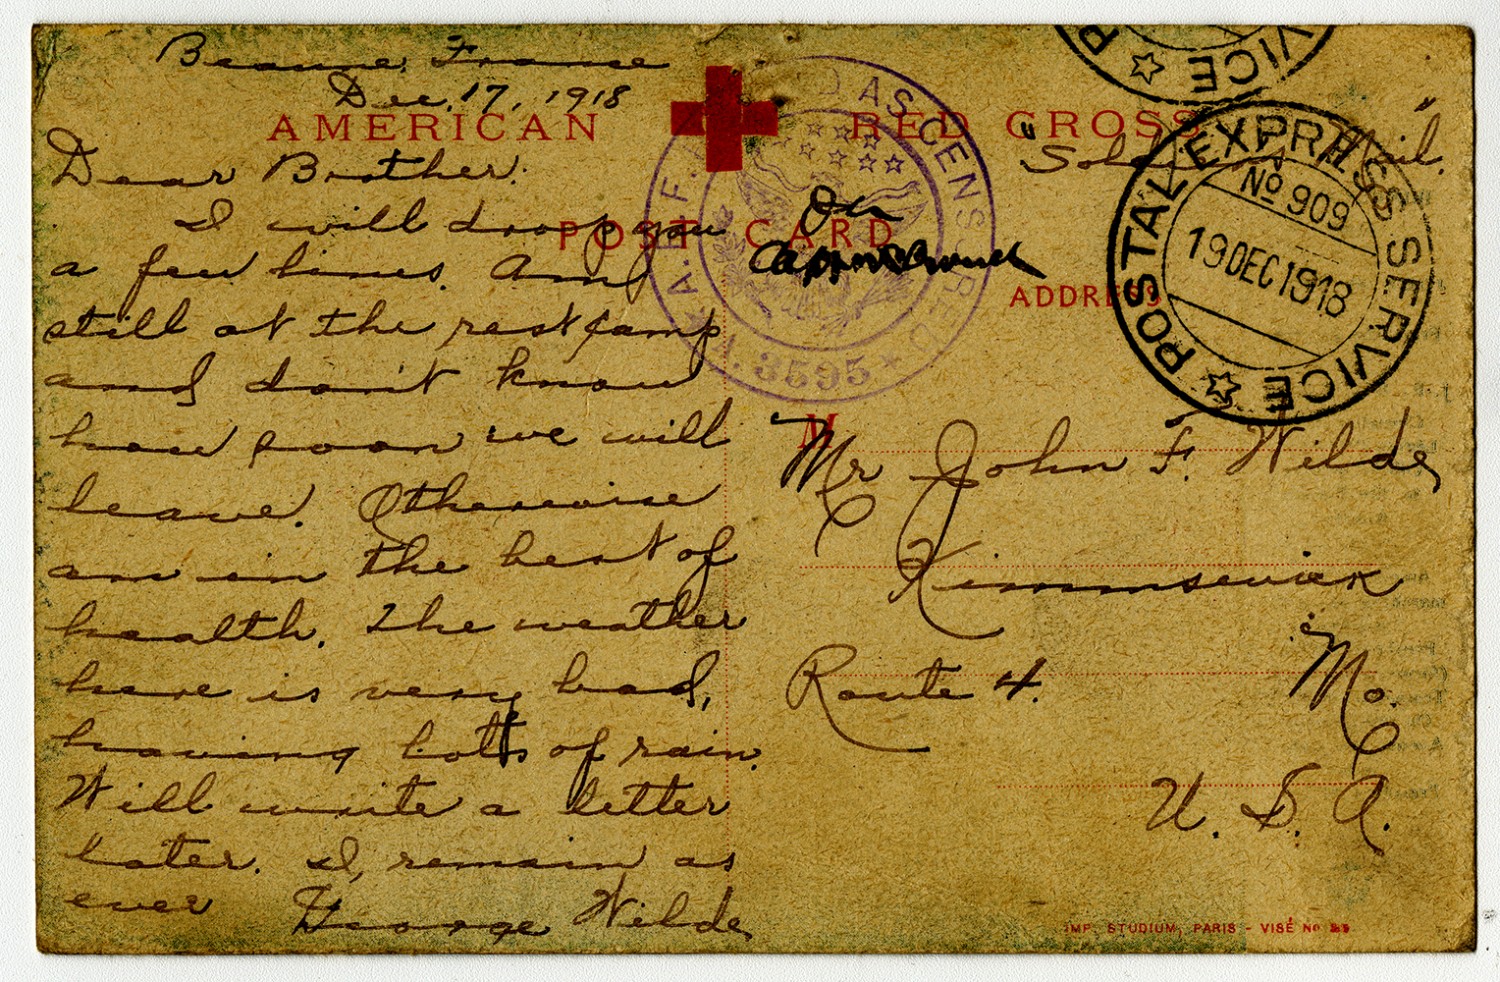 Beaune, France
Dec. 17, 1918
AMERICAN RED CROSS
POST CARD
Dear Brother:
I will drop you
a few lines. Am
still at the rest camp
and don't know
how soon we will
leave. Otherwise
am in the best of
health. The weather
here is very bad,
having lots of rain.
Will write a letter
later. I, remain as
ever George Wilde
"Soldier's Mail."
ADDRESS
M
Mr John F. Wilde
Kimmswick
Route 4. Mo.
U. S. A.
A.E.F. PASSED AS CENSORED
A. 3595
POSTAL EXPRESS SERVICE
No 909
19 DEC 1918
P VICE
IMP. STUDIUM, PARIS - VISÉ No